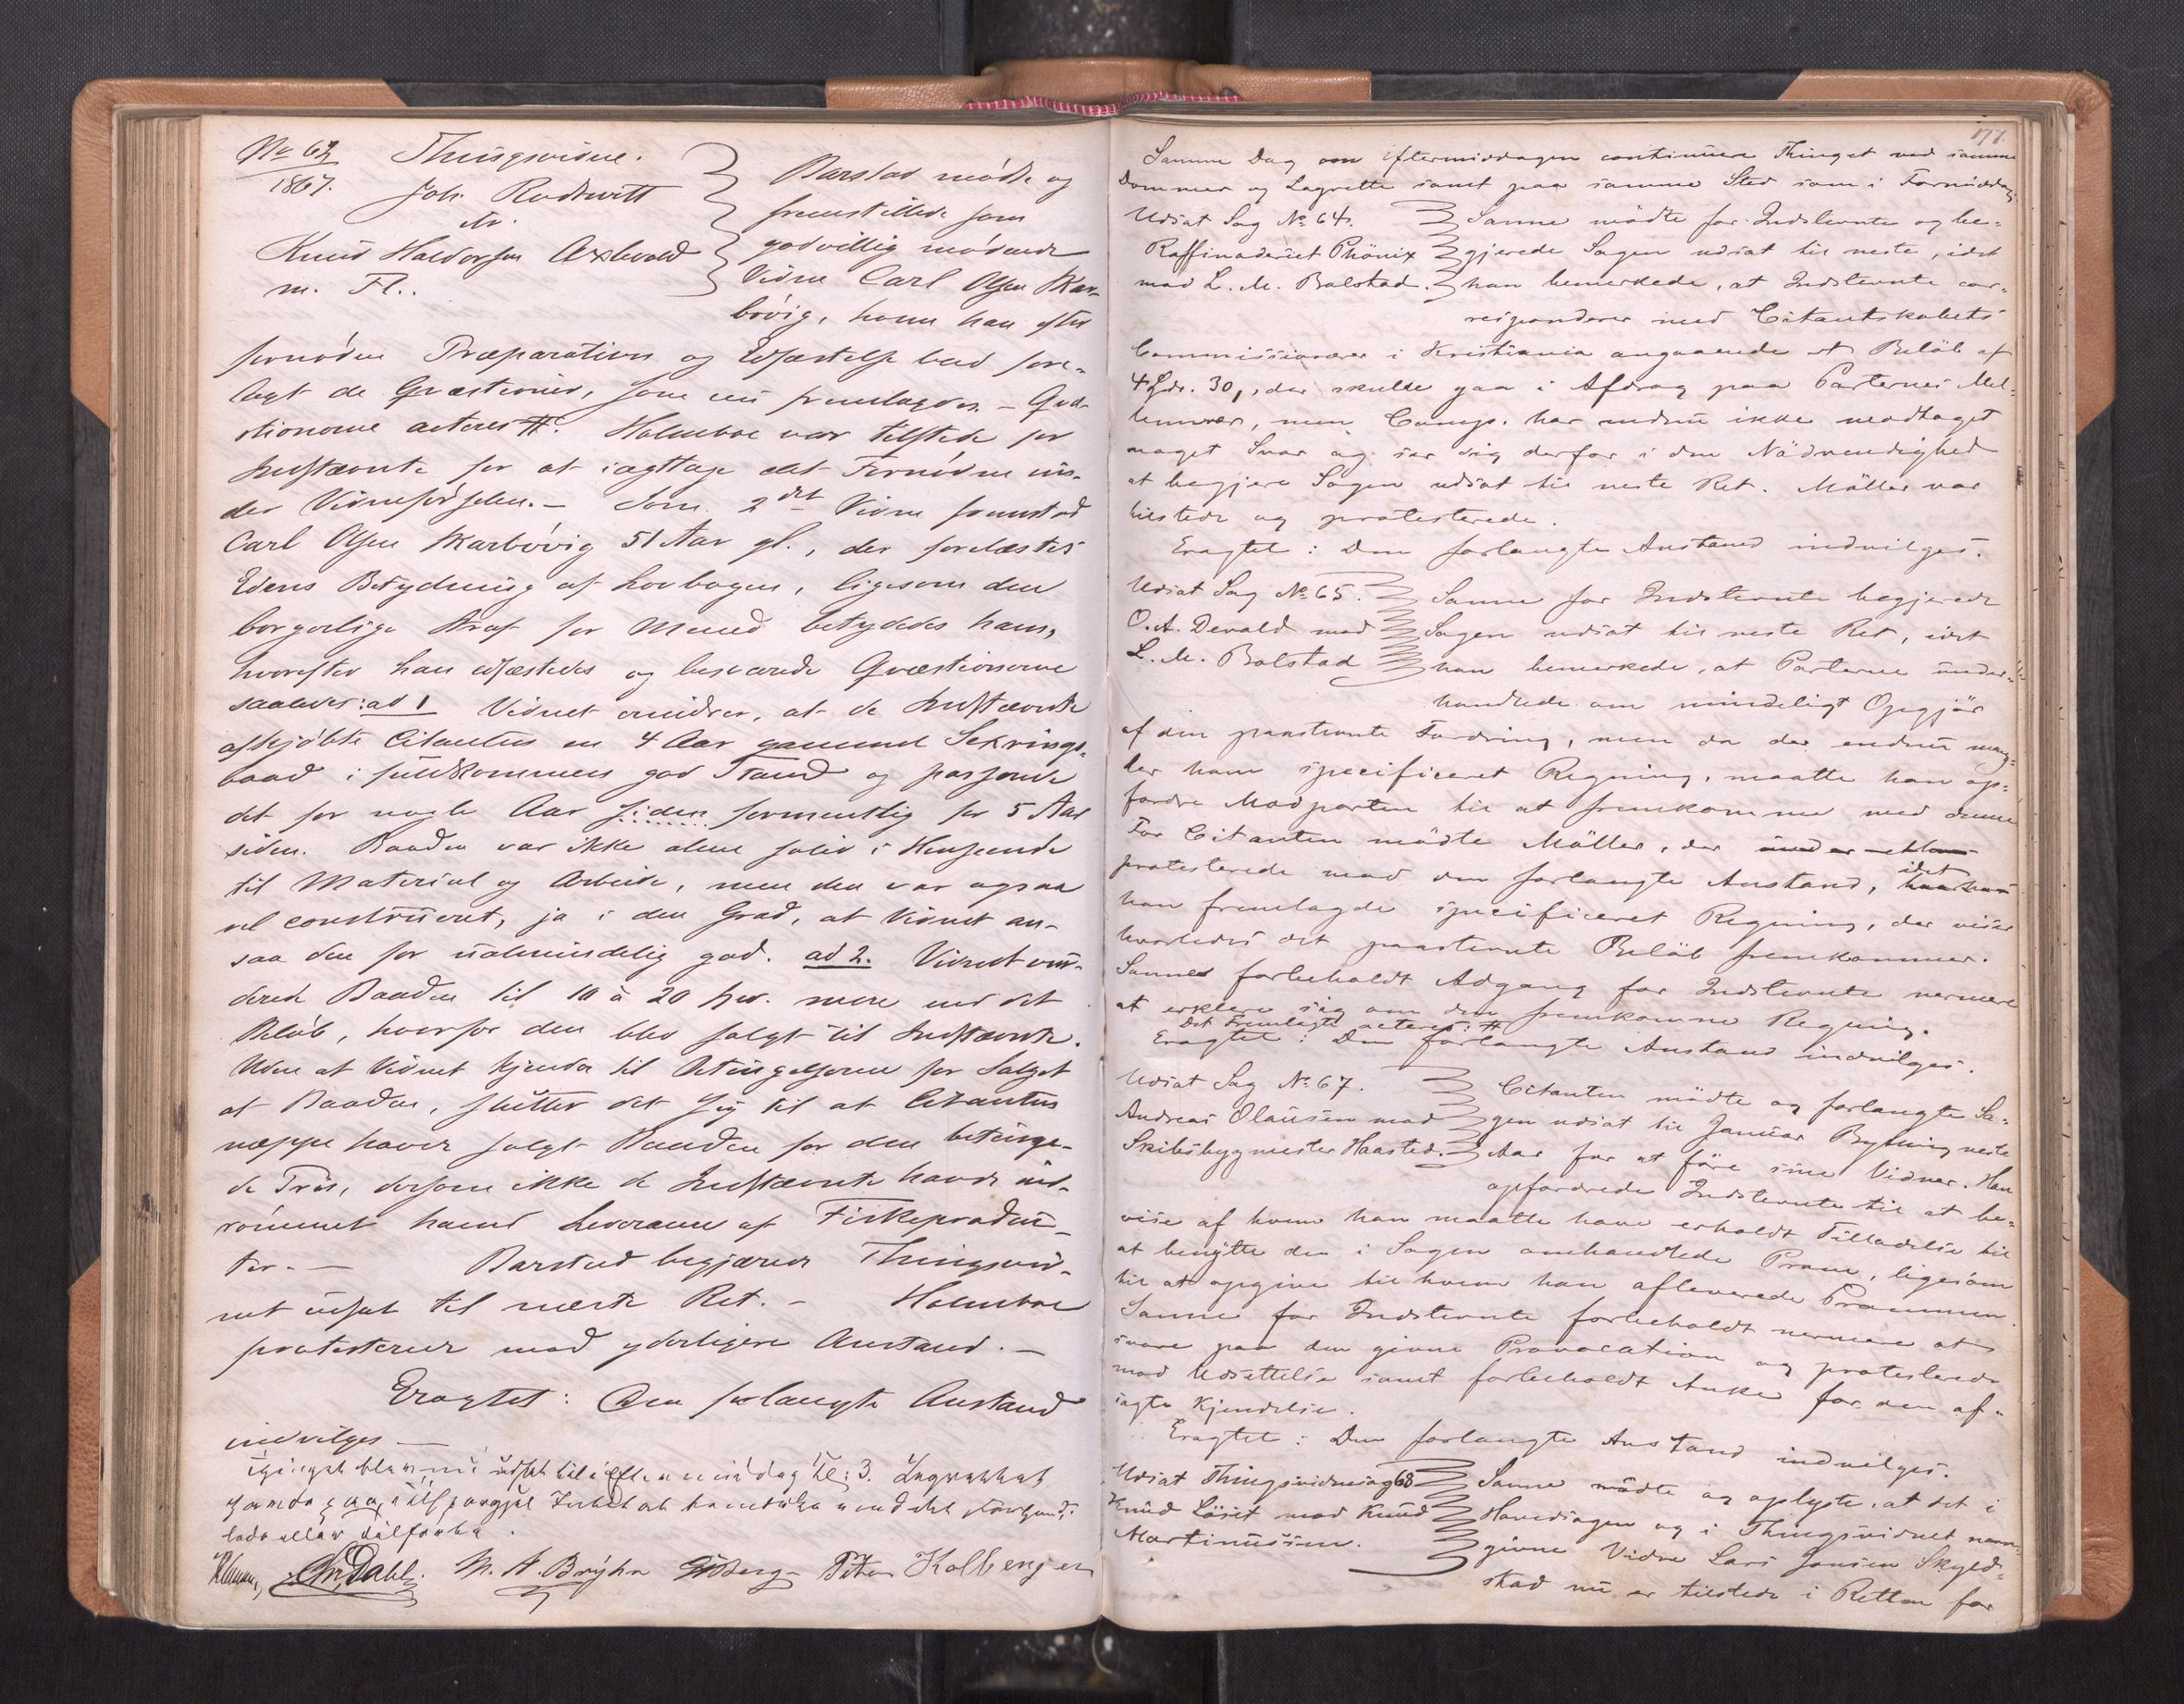 No 62 Thingsvidne.
1867.
Joh. Rodtwitt
ctr.
Knud Haldorsen Axlevold
m. Fl.
Barstad mødte og
fremstillede som
godvillig mødende
Vidne Carl Olsen Skar-
bövig, hvem han efter
fornøden Præparation og Edfæstelse bad fore-
lagt de Qvæstioner, som nu fremlagdes. – Qvæ-
stionerne acteres #. Holmboe var tilstede for
Indstævnte for at iagttage det Fornødne un-
der Vidneførselen. – Som 2det Vidne fremstod
Carl Olsen Skarbövig 51 Aar gl., der forelæstes
Edens Betydning af Lovbogen, ligesom den
borgerlige Straf for Mened betydedes ham,
hvorefter han edfæstedes og besvarede Qvæstionerne
saaledes: ad 1 Vidnet erindrer, at de Indstævnte
afkjøbte Citanten en 4 Aar gammel Sexrings-
baad i fuldkommen god Stand og passerede
det for nogle Aar siden formentlig for 5 Aar
siden. Baaden var ikke alene solid i Henseende
til Material og Arbeide, men den var ogsaa
vel construeret, ja i den Grad, at Vidnet an-
saa den for ualmindelig god. ad 2. Vidnet vur-
derede Baaden til 10 à 20 mere end det
Beløb, hvorfor den blev solgt til Indstævnte.
Uden at Vidnet kjender til Betingelserne for Salget
af Baaden, slutter det sig til at Citanten
neppe havde solgt Baaden for den betinge-
de Priis, dersom ikke de Indstævnte havde ind-
rømmet ham Leverance af Fiskeproduc-
ter. – Barstad begjærede Thingsvid-
net udsat til næste Ret. – Holmboe
protesterede mod yderligere Anstand. –
Eragtet: Den forlangte Anstand
indvilges –
Thinget blev nu udsat til i Eftermiddag Kl: 3.
M. A. Bryhn Peter Kolbensen
Dahl.
177.
Samme Dag om Eftermiddagen continuere Thinget med samme
Dommer og Lagrette samt paa samme Sted som i Formiddag.
Udsat Sag No 64.
Raffinaderiet Phönix
mod L. M. Bolstad.
Sanne mödte for Indstevnte og be-
gjerede Sagen udsat til neste, idet
han bemerkede, at Indstevnte cor-
responderer med Citantskabets
Commissionærer i Kristiania angaaende et Belöb af
4 Spdr. 30, der skulde gaa i Afdrag paa Parternes Mel-
lemver, men Comp. har endnu ikke modtaget
noget Svar og ser sig derfor i den Nödvendighed
at begjere Sagen udsat til neste Ret. Möller var
tilstede og protesterede.
Eragtet: Den forlangte Anstand indvilges.
Udsat Sag No 65.
O. A. Devold mod
L. M. Bolstad
Sanne for Indstevnte begjerede
Sagen udsat til neste Ret, idet
han bemerkede, at Parterne under-
handlede om mindeligt Opgjör
af den paastevnte Fordring, men da der endnu mang-
ler ham specificeret Regning, maatte han op-
fordre Modparten til at fremkomme med denne
For Citanten mödte Möller, der
protesterede mod den forlangte Anstand, idet
han fremlagde specificeret Regning, der viser
hvorledes det paastevnte Belöb fremkommer.
Sanne forbeholdt Adgang for Indstevnte nermere
at erklere sig om den fremkomne Regning.
Det Fremlagte acteres: #
Eragtet: Den forlangte Anstand indvilges.
Udsat Sag No 67.
Andreas Olausen mod
Skibsbygmester Haasted.
Citanten mödte og forlangte Sa-
gen udsat til Januar Bything neste
Aar for at före sine Vidner. Han
opfordrede Indstevnte til at be-
vise af hvem han maatte have erholdt Tilladelse til
at benytte den i Sagen omhandlede Pram, ligesom
til at opgive til hvem han afleverede Prammen.
Sanne for Indstevnte forbeholdt nermere at
svare paa den givne Provocation og protesterede
mod Udsettelse samt forbeholdt Anke for den af-
sagte Kjendelse.
Eragtet: Den forlangte Anstand indvilges.
Udsat Thingsvidnesag 68
Knud Löset mod Knud
Martinussen.
Sanne mödte og oplyste, at det i
Hovedsagen og i Thingsvidnet navn-
givne Vidne Lars Jonsen Skjeld-
stad nu er tilstede i Retten for